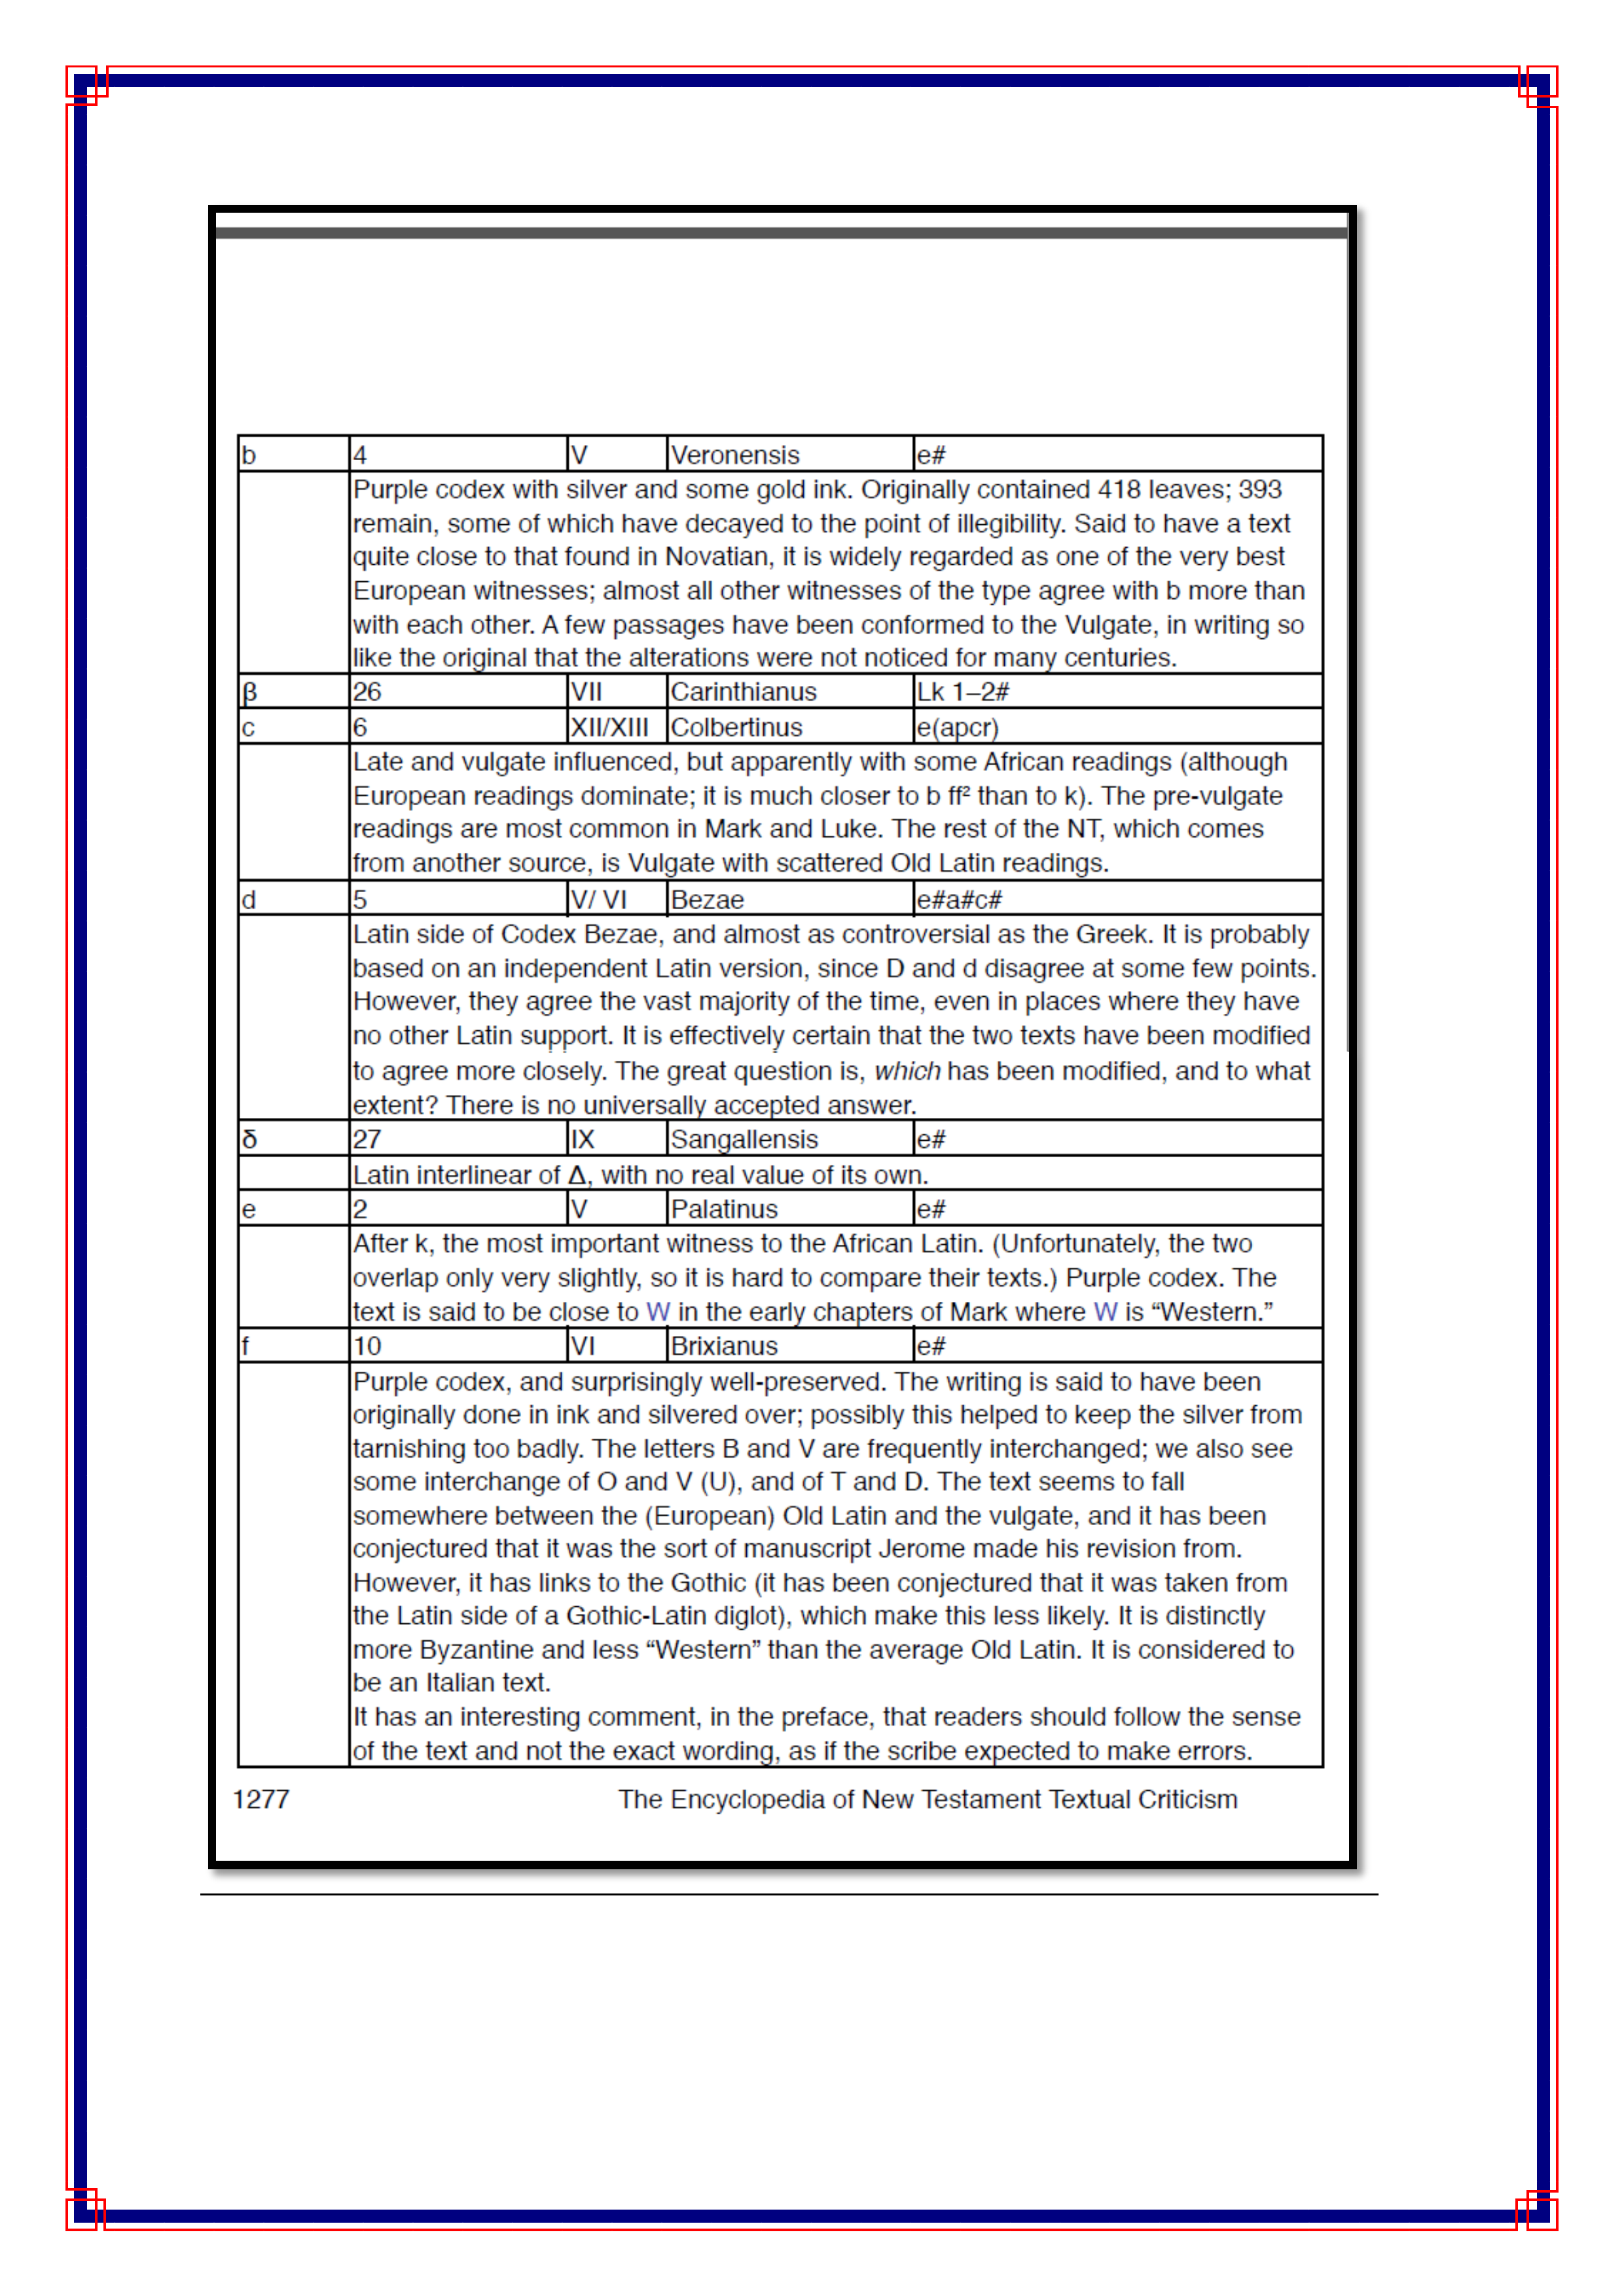 b 4 V Veronensis e#
Purple codex with silver and some gold ink. Originally contained 418 leaves; 393
remain, some of which have decayed to the point of illegibility. Said to have a text
quite close to that found in Novatian, it is widely regarded as one of the very best
European witnesses; almost all other witnesses of the type agree with b more than
with each other. A few passages have been conformed to the Vulgate, in writing so
like the original that the alterations were not noticed for many centuries.
β 26 VII Carinthianus Lk 1–2#
c 6 XII/XIII Colbertinus e(apcr)
Late and vulgate influenced, but apparently with some African readings (although
European readings dominate; it is much closer to b ff² than to k). The pre-vulgate
readings are most common in Mark and Luke. The rest of the NT, which comes
from another source, is Vulgate with scattered Old Latin readings.
d 5 V/ VI Bezae e#a#c#
Latin side of Codex Bezae, and almost as controversial as the Greek. It is probably
based on an independent Latin version, since D and d disagree at some few points.
However, they agree the vast majority of the time, even in places where they have
no other Latin support. It is effectively certain that the two texts have been modified
to agree more closely. The great question is, which has been modified, and to what
extent? There is no universally accepted answer.
δ 27 IX Sangallensis e#
Latin interlinear of Δ, with no real value of its own.
e 2 V Palatinus e#
After k, the most important witness to the African Latin. (Unfortunately, the two
overlap only very slightly, so it is hard to compare their texts.) Purple codex. The
text is said to be close to W in the early chapters of Mark where W is “Western.”
f 10 VI Brixianus e#
Purple codex, and surprisingly well-preserved. The writing is said to have been
originally done in ink and silvered over; possibly this helped to keep the silver from
tarnishing too badly. The letters B and V are frequently interchanged; we also see
some interchange of O and V (U), and of T and D. The text seems to fall
somewhere between the (European) Old Latin and the vulgate, and it has been
conjectured that it was the sort of manuscript Jerome made his revision from.
However, it has links to the Gothic (it has been conjectured that it was taken from
the Latin side of a Gothic-Latin diglot), which make this less likely. It is distinctly
more Byzantine and less “Western” than the average Old Latin. It is considered to
be an Italian text.
It has an interesting comment, in the preface, that readers should follow the sense
of the text and not the exact wording, as if the scribe expected to make errors.
1277 The Encyclopedia of New Testament Textual Criticism